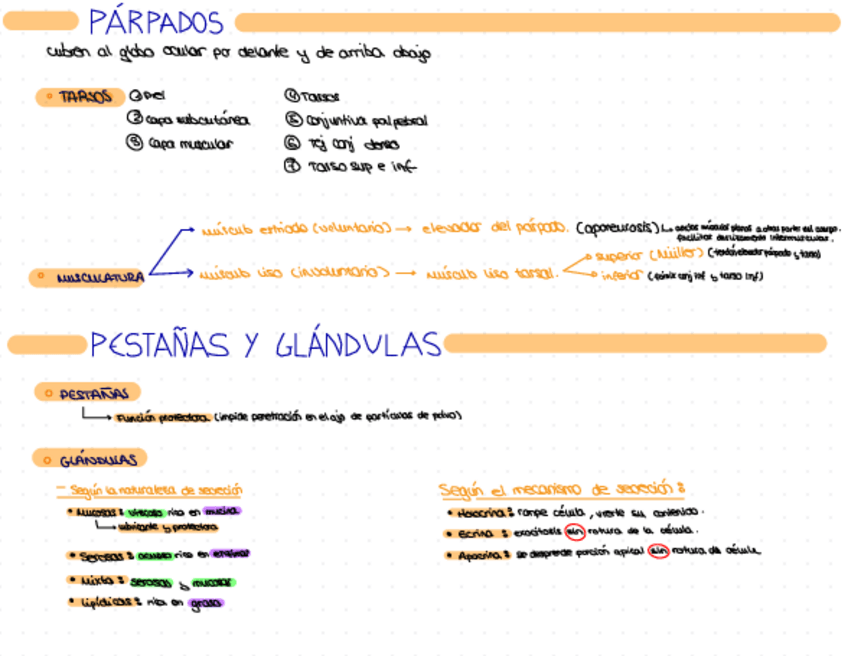 PÁRPADOS
cubren al globo ocular por delante y de arriba abajo
TARSOS
① Piel
② capa subcutánea
③ Capa muscular
④ Tarsos
⑤ Conjuntiva palpebral
⑥ Tej conj denso
⑦ Tarso sup e inf
MUSCULATURA
músculo estriado (voluntario) → elevador del párpado. (aponeurosis)
facilitar deslizamiento intermuscular.
músculo liso (involuntario) → músculo liso tarsal.
superior (Müller) (tendón elevador párpado y tarso)
inferior (fórnix conj inf y tarso inf)
PESTAÑAS Y GLÁNDULAS
PESTAÑAS
Función protectora (impide penetración en el ojo de partículas de polvo)
GLÁNDULAS
- Según la naturaleza de secreción
• Mucosas: viscosa rica en mucina
lubricante y protectora
• Serosas: acuosa rica en enzimas
• Mixta: serosas y mucosas
• Lipídicas: rica en grasa
Según el mecanismo de secreción:
• Holocrina: rompe célula, vierte su contenido.
• Ecrina: exocitosis sin rotura de la célula.
• Apocrina: se desprende porción apical sin rotura de célula